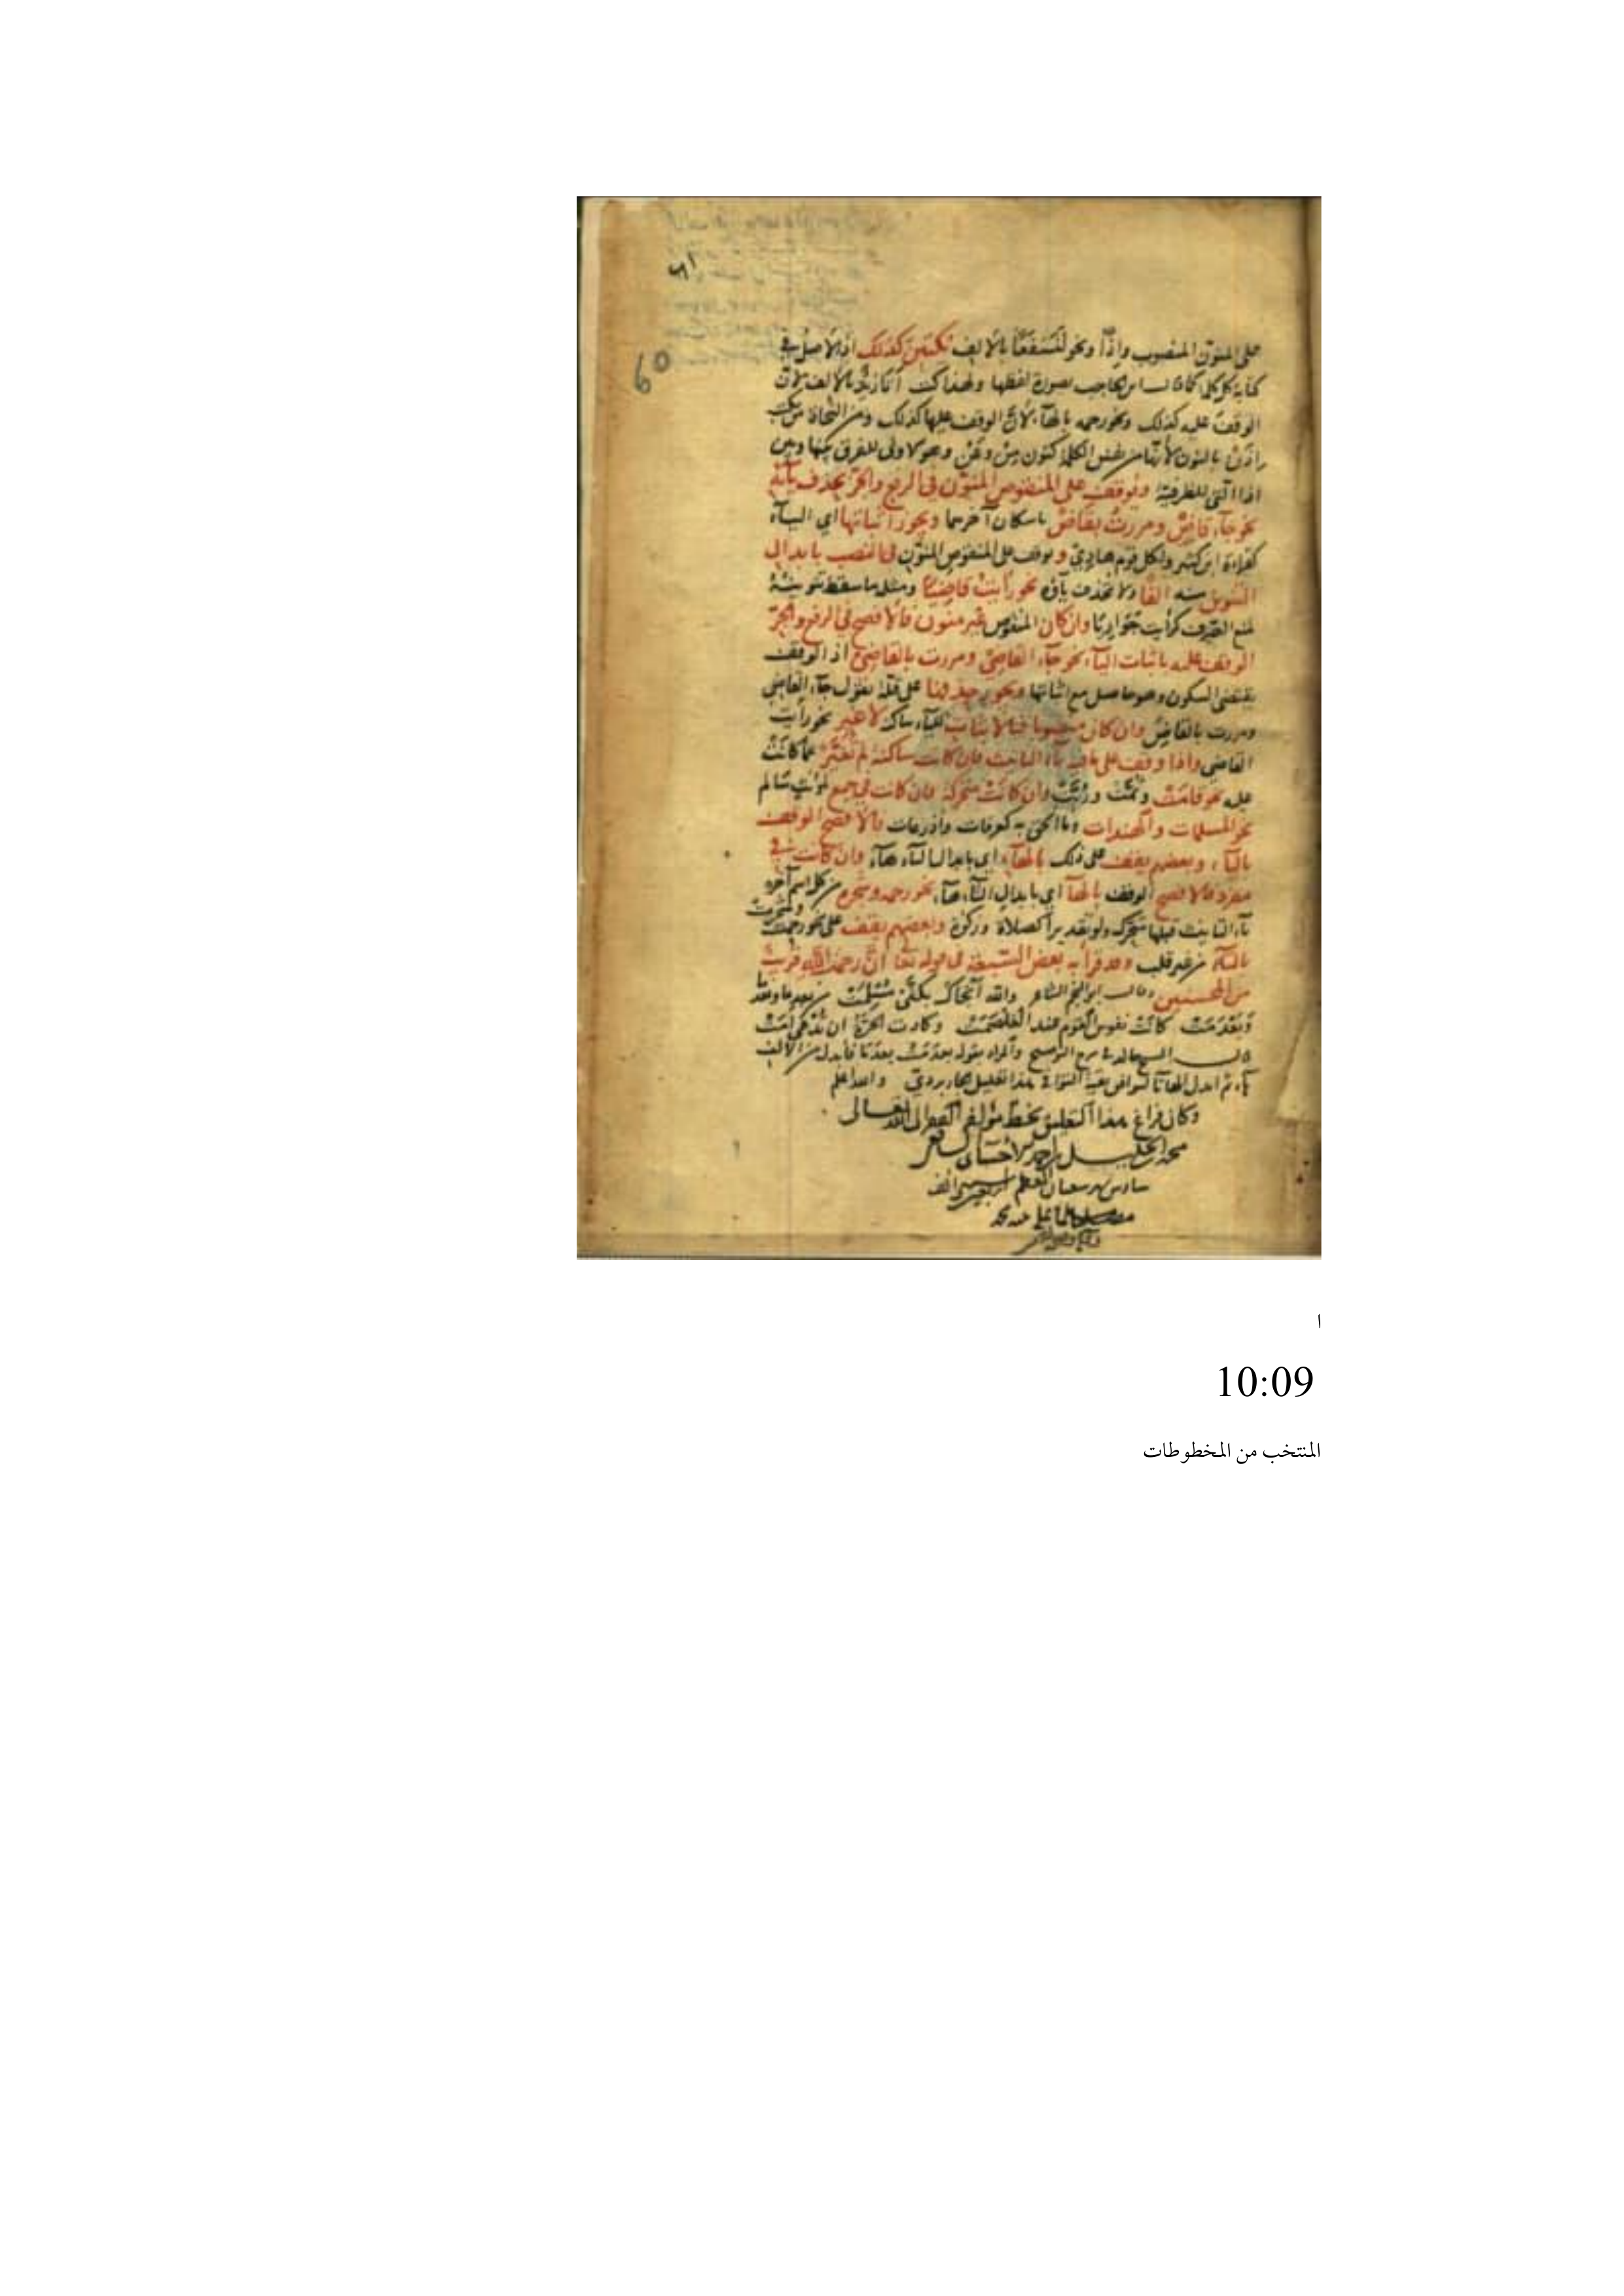 على المنون المنصوب وإذًا ونحو لنسفعًا بالألف يكتبن كذلك اذ الأصل في
كتابة كل كلمة كما قال ابن الحاجب بصورة لفظها ولهذا كتب أنا زيد بالألف لأن
الوقف عليه كذلك ونحو رحمه بالهآء لأن الوقف عليها كذلك ومن النحاة من يكتب
إذن بالنون لأنها من نفس الكلمة كنون من وعن وهو الأولى للفرق بينها وبين
اذا التي للظرفية ويوقف على المنقوص المنون في الرفع والجر بحذف يائه
نحو جآء قاضْ ومررت بقاضْ باسكان آخرهما ويجوز اثباتها اي اليآء
كقراءة ابن كثير ولكل قوم هادي ويوقف على المنقوص المنون في النصب بابدال
التنوين منه الفًا ولا تحذف يآؤه نحو رأيت قاضيًا ومثله ما سقط تنوينه
لمنع الصرف كرأيت جواريا وان كان المنقوص غير منون فالأفصح في الرفع والجر
الوقف عليه باثبات اليآء نحو جآء القاضي ومررت بالقاضي اذ الوقف
يقتضي السكون وهو حاصل مع اثباتها ويجوز حذفها على قلة تقول جآء القاضْ
ومررت بالقاضْ وان كان منصوبا فبالاثبات لليآء ساكنة لا غير نحو رأيت
القاضي واذا وقف على ما فيه تاء التانيث فان كانت ساكنة لم تغير عما كانت
عليه نحو قامت وثمت وربت وان كانت متحركة فان كانت في جمع مؤنث سالم
نحو المسلمات والهندات وما الحق به كعرفات واذرعات فالأفصح الوقف
بالتآء وبعضهم يقف على ذلك بالهآء اي بابدال التآء هآء وان كانت في
مفرد فالأفصح الوقف بالهآء اي بابدال التآء هآء نحو رحمه وشجره من كل اسم آخره
تآء التانيث قبلها متحرك ولو تقديرا كصلاة وزكوة وبعضهم يقف على نحو رحمت وشجرت
بالتآء من غير قلب وقد قرأ به بعض السبعة في قوله تعا ان رحمت الله قريب
من المحسنين وقال ابو النجم الشاعر والله أنجاك بكفي مسلمت من بعدما وبعدما
وبعدمت كانت نفوس القوم عند الغلصمت وكادت الحرة ان تدعى أمت
قال الشيخ خالد في شرح التوضيح والمراد بقوله بعدمت بعدما فأبدل من الألف
هآء ثم ابدل الهآء تآ ليوافق بقية القوافي هذا تعليل الجاربردي والله اعلم
وكان فراغ هذا التعليق بخط مؤلفه الفقير الى الله تعالى
سادس شهر شعبان المعظم
ا
10:09
المنتخب من المخطوطات